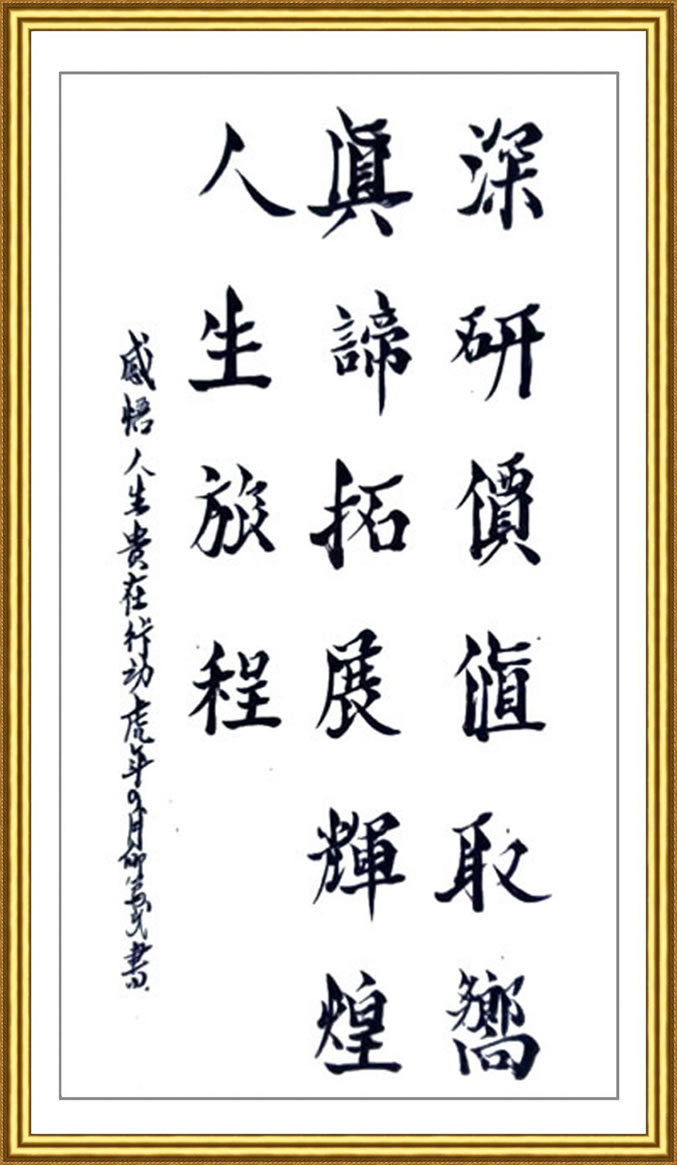 深研價值取嚮
真諦拓展輝煌
人生旅程
感悟人生貴在行动虎年九月柳書